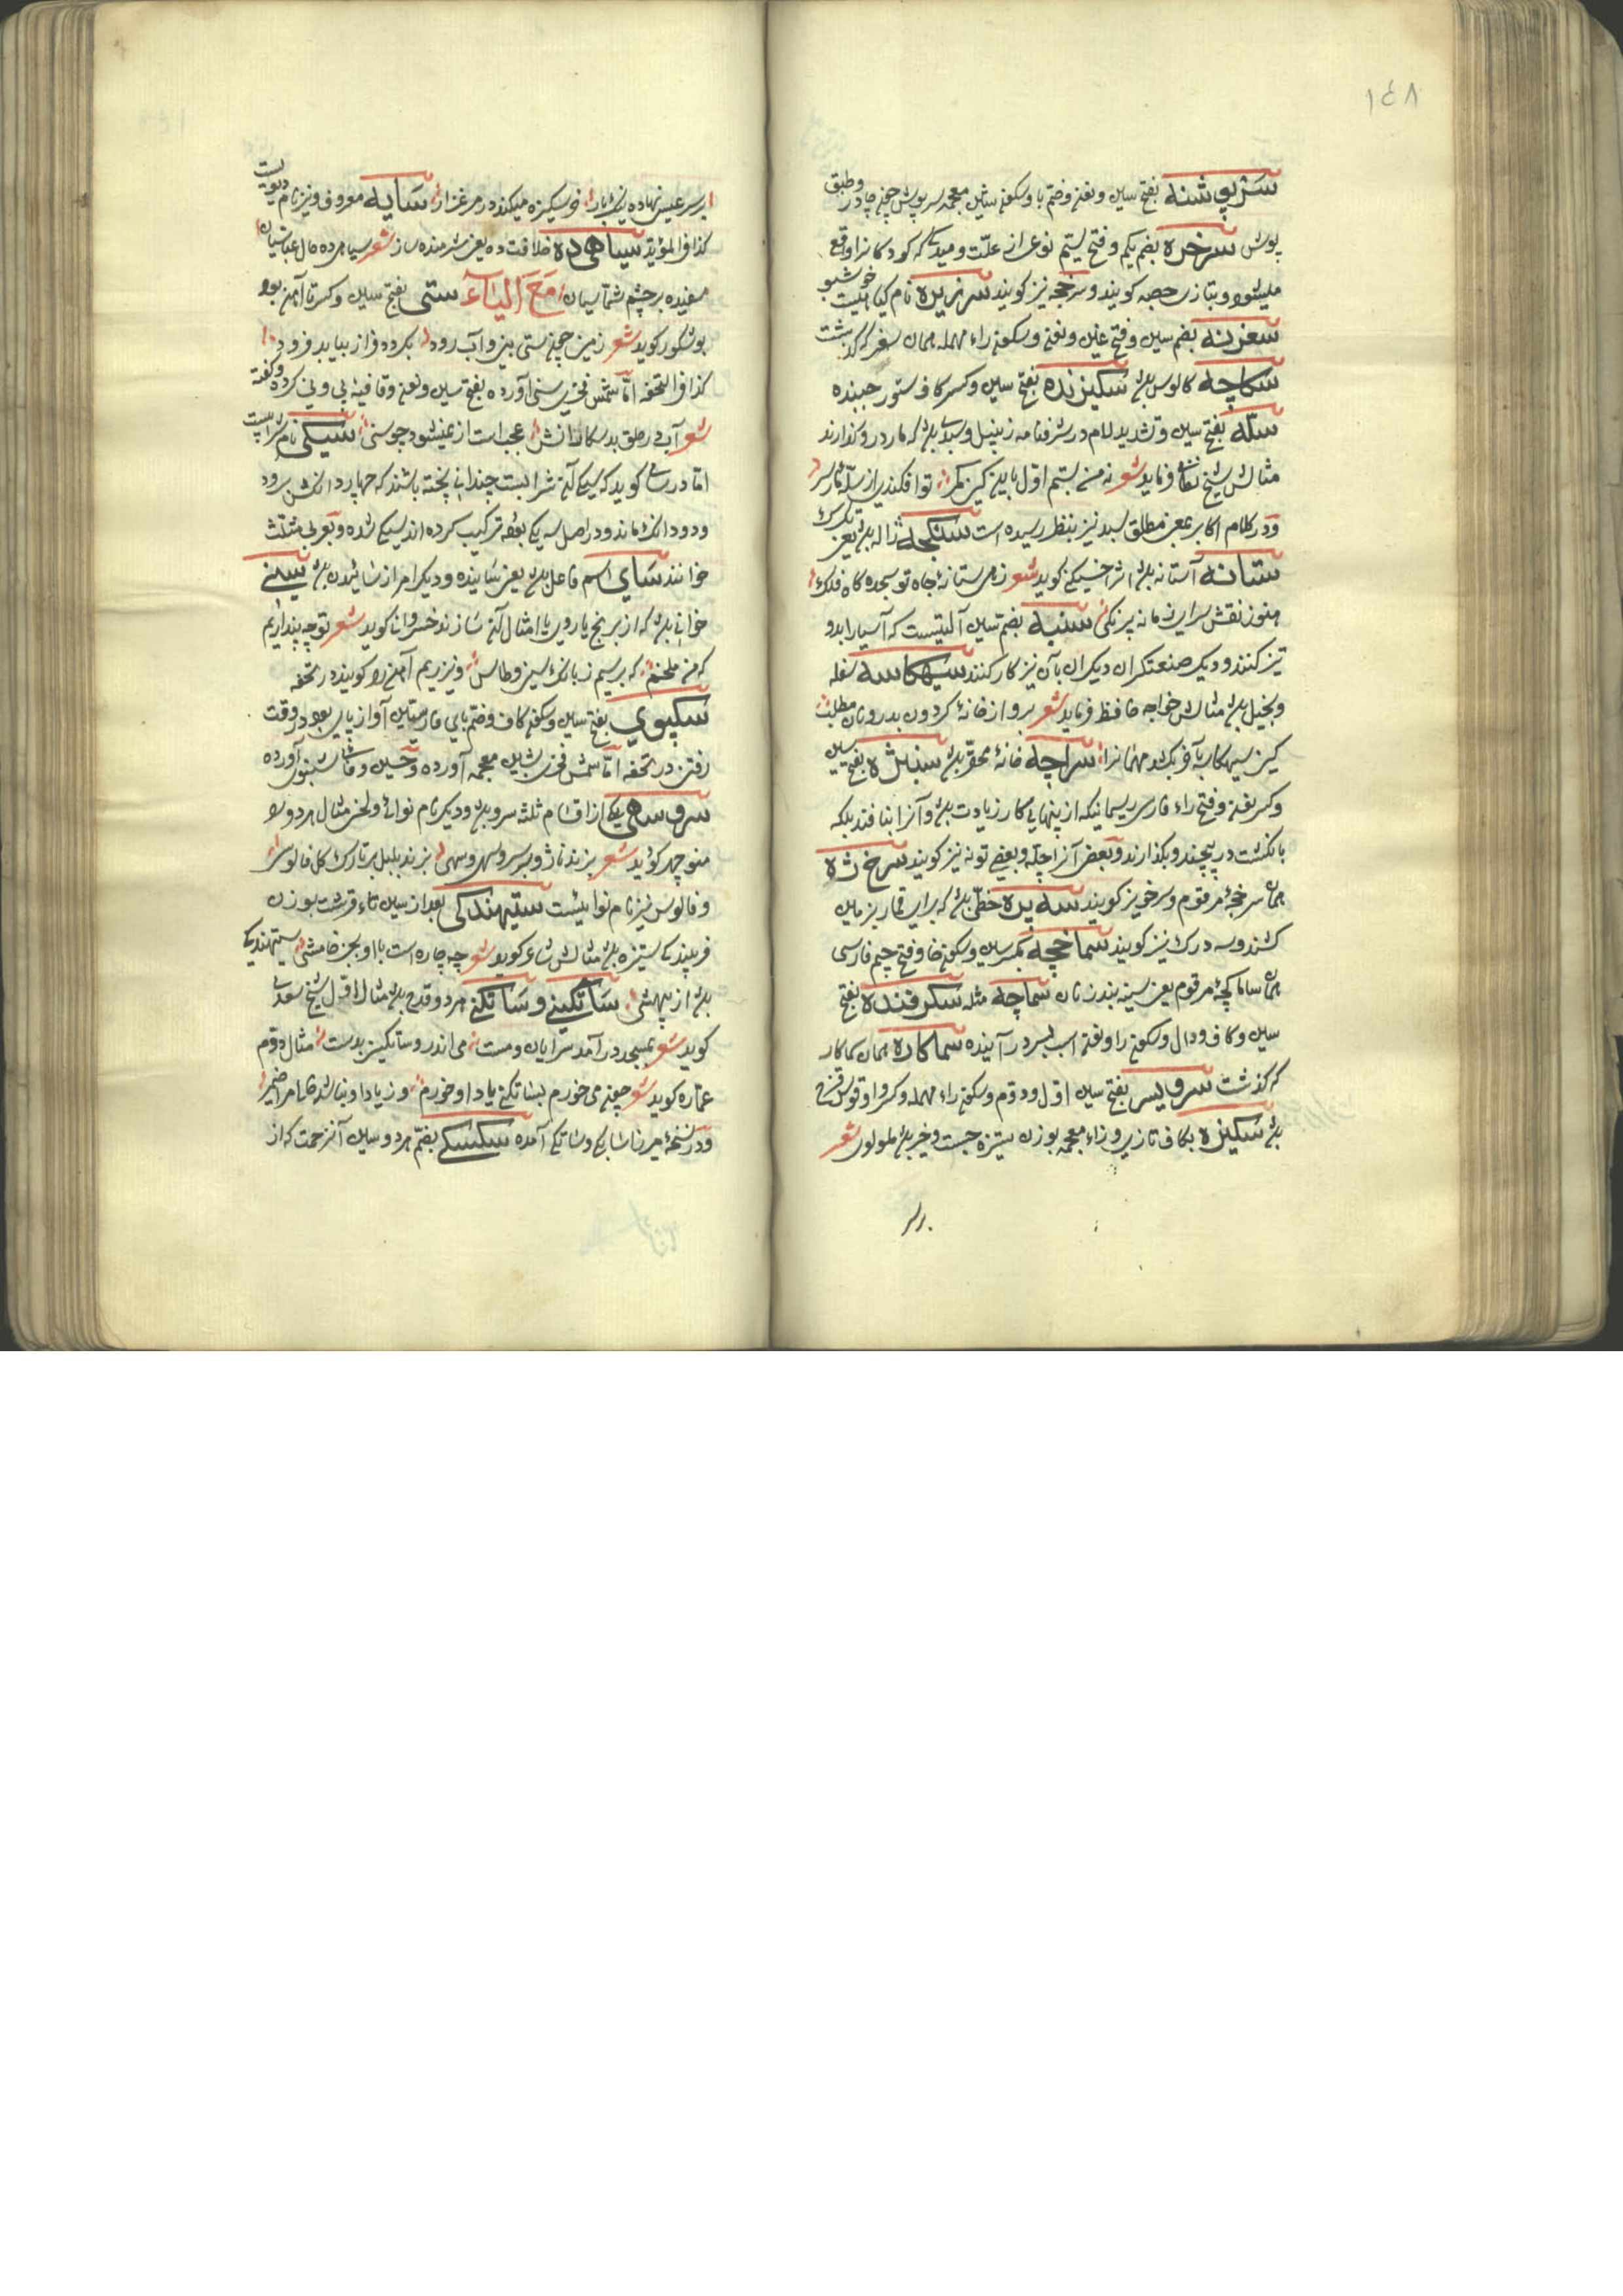 ١٤٨
سرپوشنه بفتح سین و نون و ضم با و سکون شین معجمه سرپوش چون چادر و طبق
پوش سرخزه بضم یکم و فتح سیم نوعی از علت و میدگی که کودکانرا واقع
میشود و بتازی حصبه کویند و سرخجه نیز کویند سرزیره نام کیاهیست خوشبو
سغرنه بضم سین و فتح غین و نون و سکون راء مهمله همان سغر که گذشت
سکاچه کابوس باشد سکیزنده بفتح سین و کسر کاف ستور جهنده
سله بفتح سین و تشدید لام در شرفنامه زنبیل و سبدی باشد که مار درو گذارند
مثالش شیخ نظامی فرماید شعر نه من بستم اول باین کین کمر تو افکندی از سله مار سر
و در کلام اکابر بمعنی مطلق سبد نیز بنظر رسیده است سنکچه ژاله باشد یعنی تکرک
ستانه آستانه باشد اثیر اخسیکتی کوید شعر زهی ستانه جاه تو سجده گاه فلک
هنوز نقش سرای زمانه پرنکی سنبه بضم سین آلتیست که آسیا را بدو
تیز کنند و دیگر صنعتگران دیگر ان بآن نیز کار کنند سیهکاسه سفله
و بخیل باشد مثالش خواجه حافظ فرماید شعر برو از خانه کردون بدر و نان مطلب
کین سیهکاسه در آخر بکشد مهمانرا سراچه خانه محقر باشد سنباژه بفتح سین
و کسر نون و فتح راء فارسی ریسمانیکه از پنهایی کار زیادت باشد و آنرا بنافند بلکه
بانکشت در پیچند و بگذارند و بعضی آنرا چله و بعضی تونه نیز کویند سرخ ژه
همان سرخجه مرقوم و سرخویز کویند سه پره خطی باشد که برای قمار بر زمین
کشند و سه درک نیز کویند سماخچه بکسر سین و سکون خا و فتح چیم فارسی
همان ساماکچه مرقوم یعنی سینه بند زنان سماچه مثله سکرفنده بفتح
سین و کاف و دال و سکون را و نون اسب بسر در آینده سماکاره همان سماکار
که گذشت سرویس بفتح سین اول و دوم و سکون راء مهمله و کسر واو قوس قزح
باشد سکیزه بکاف تازی و زاء معجمه بوزن ستیزه جست و خیز باشد مولوی شعر
بر سر عیسی نهاده تنک بار خر سکیزه میکند در مرغزار سایه معروف و نیز نام دیویست
کذا فی المؤید سیاهی ده خلافت ده یعنی شرمنده ساز شعر سیاهی ده خال عباسیان
سفیده بر چشم شماسیان مع الیاء ستی بفتح سین و کسر تا آهن بود
بوشکور کوید شعر زمین چون ستی بینی و آب رود بکردد فراز بیاید فرود
کذا فی التحفه اما شمس فخری سنی آورده بفتح سین و نون و قافیه بی و نی کرده و گفته
شعر آب در حلق بدسکالانش عجب است از نمیشود چو سنی سیکی نام شرابیست
اما در رساله کوید که سیکی آن شرابست چندانی پخته باشند که چهار دانکش برود
و دو دانک ماند و در اصل سه یکی بوده ترکیب کرده اند سیکی شده و بعربی مثلث
خوانند سای اسم فاعل باشد یعنی ساینده و دیگر امر از ساییدن باشد سینی
خوانی باشد که از برنج یا روی یا امثال آن سازند خسروانی کوید شعر توچه پنداریم
که من ملخم که بترسم ز بانک سینی و طاس و نیز ریم آهن را کویند در تحفه
سکپوی بفتح سین و سکون کاف و ضم بای فارسی آواز پای بود در وقت
رفتن در تحفه اما شمس فخری بشین معجمه آورده و حسین وفائی شبنوی آورده
سروسهی یکی از اقسام ثلثه سرو باشد و دیگر نام نوائی و لحن مثال هر دو را
منوچهر کوید شعر بزند ناژو بر سرو سهی سرو سهی بزند بلبل بر تارک گل قالوس
و قالوس نیز نام نوائیست ستیهندکی بعد از سین تاء قرشت بوزن
فریبندگی ستیزه باشد مثالش شاعر کوید شعر چه چاره است با او بجز خامشی ستیهندکی
باشد از بیهشی ساتکینی و ساتکنی هر دو قدح باشد مثال اول شیخ سعدی
کوید شعر بمسجد در آمد سرایان و مست می اندر سر و ساتکینی بدست مثال دوم
عماره کوید شعر چون می خورم بساتکنی یاد او خورم وز یاد او نباشد خالی مرا ضمیر
و در نسخه میرزا سابکی و ساتکی آمده سکسکی بضم هر دو سین آنزحمت که از